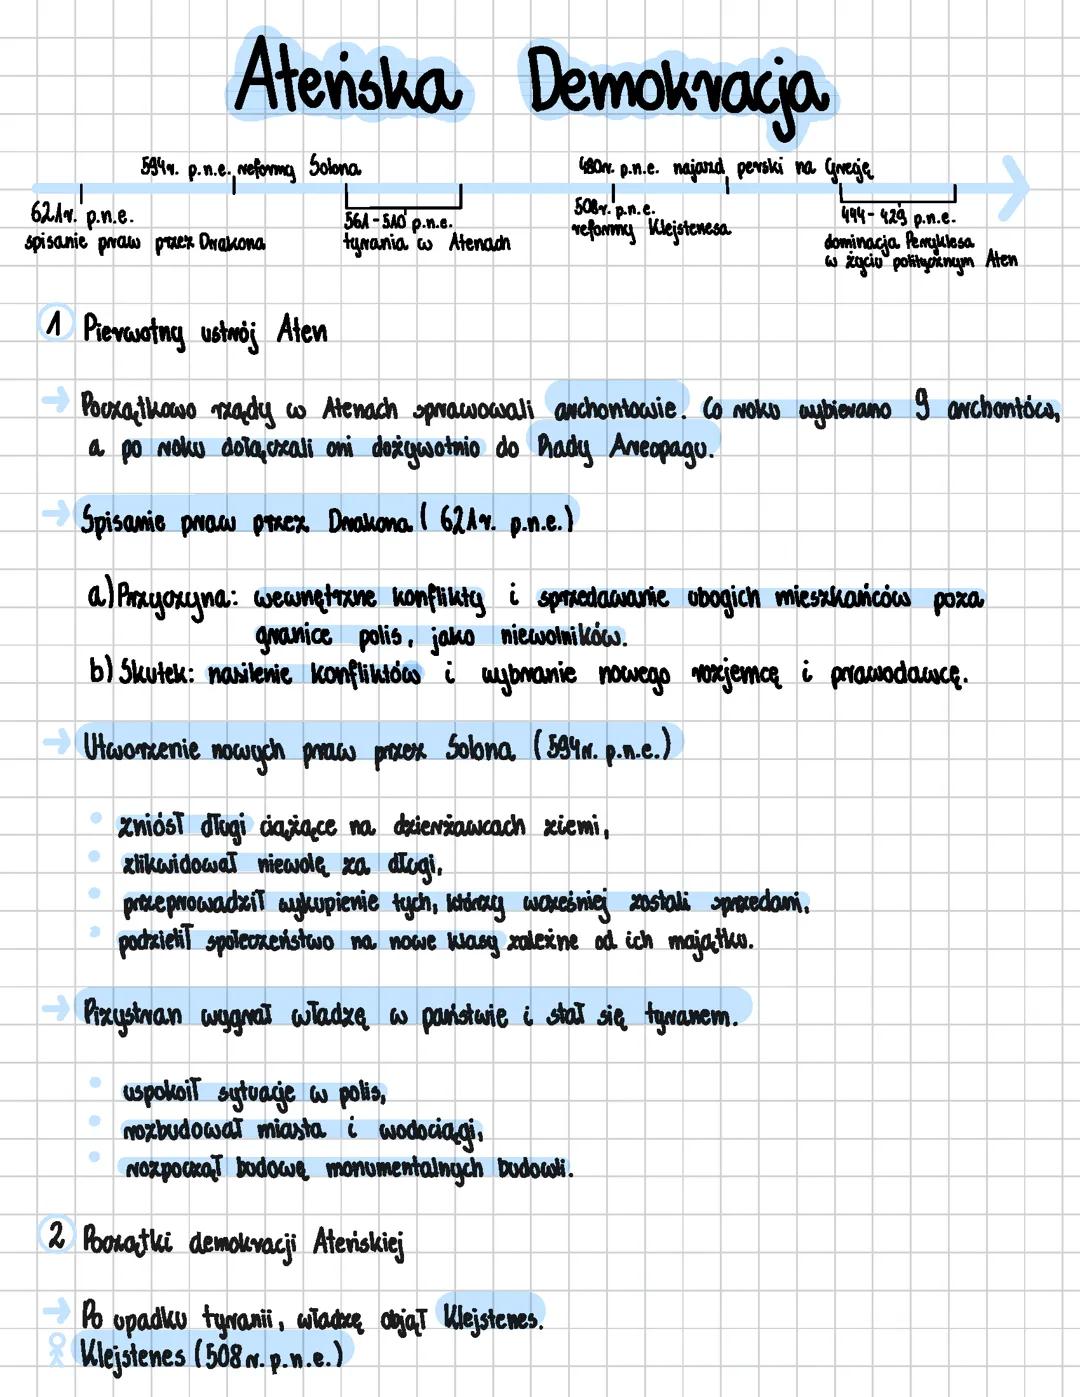 Ateńska Demokracja
594r. p.n.e. reformy Solona
480r. p.n.e. najazd perski na Grecję
621r. p.n.e.
spisanie praw przez Drakona
561-510 p.n.e.
tyrania w Atenach
508r. p.n.e.
reformy Klejstenesa
444-429 p.n.e.
dominacja Peryklesa
w życiu politycznym Aten
1 Pierwotny ustrój Aten
→ Początkowo rządy w Atenach sprawowali archontowie. Co roku wybierano 9 archontów,
a po roku dołączali oni dożywotnio do Rady Areopagu.
→ Spisanie praw przez Drakona (621r. p.n.e.)
a) Przyczyna: wewnętrzne konflikty i sprzedawanie ubogich mieszkańców poza
granice polis, jako niewolników.
b) Skutek: nasilenie konfliktów i wybranie nowego rozjemcę i prawodawcę.
→ Utworzenie nowych praw przez Solona (594r. p.n.e.)
• zniósł długi ciążące na dzierżawcach ziemi,
• zlikwidował niewolę za długi,
• przeprowadził wykupienie tych, którzy wcześniej zostali sprzedani,
• podzielił społeczeństwo na nowe klasy zależne od ich majątku.
→ Pizystrat wygrał władzę w państwie i stał się tyranem.
• uspokoił sytuacje w polis,
• rozbudował miasta i wodociągi,
• rozpoczął budowę monumentalnych budowli.
2 Początki demokracji Ateńskiej
→ Po upadku tyranii, władzę objął Klejstenes.
Klejstenes (508r. p.n.e.)